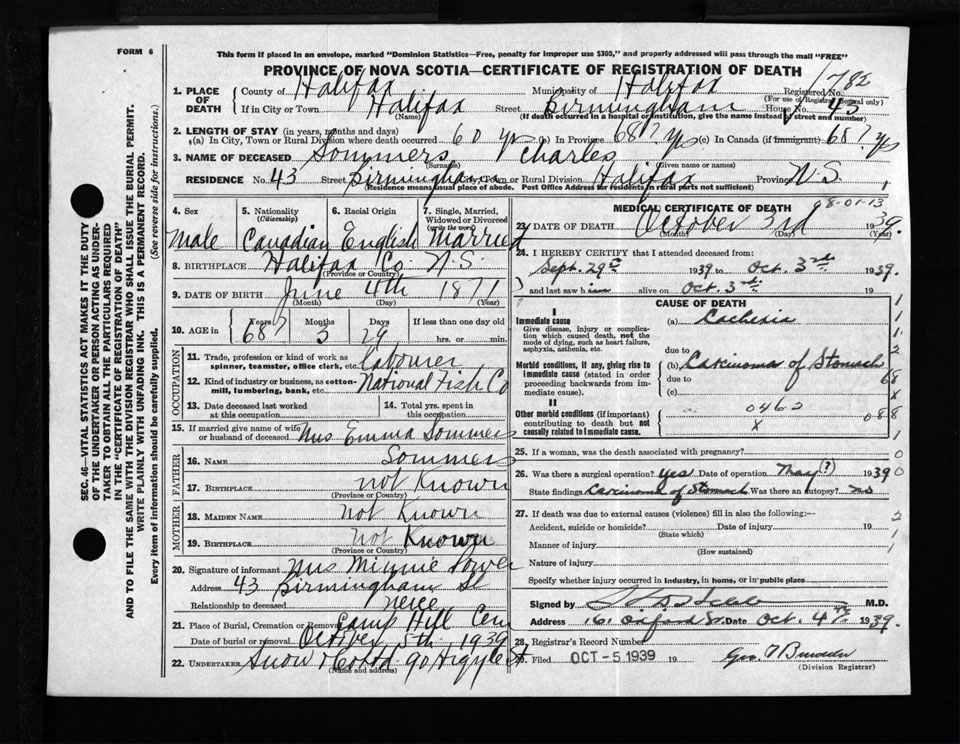 FORM 6
This form if placed in an envelope, marked "Dominion Statistics—Free, penalty for improper use $300," and properly addressed will pass through the mail "FREE"
PROVINCE OF NOVA SCOTIA—CERTIFICATE OF REGISTRATION OF DEATH
1782
1. PLACE OF DEATH
County of Halifax Municipality of Halifax Registered No.
(For use of Registrar General only)
If in City or Town Halifax Street Birmingham House No. 43
(Name) (If death occurred in a hospital or institution, give the name instead of street and number)
2. LENGTH OF STAY (in years, months and days)
(a) In City, Town or Rural Division where death occurred 60 yrs (b) In Province 68 1? yrs (c) In Canada (if immigrant) 68 1? yrs
3. NAME OF DECEASED Sommers Charles
(Surname) (Given name or names)
RESIDENCE No. 43 Street Birmingham City, Town or Rural Division Halifax Province N.S.
(Residence means usual place of abode. Post Office Address for residents in rural parts not sufficient)
4. Sex
5. Nationality (Citizenship)
6. Racial Origin
7. Single, Married, Widowed or Divorced (write the word)
Male Canadian English Married
8. BIRTHPLACE Halifax Co. N.S.
(Province or Country)
9. DATE OF BIRTH June 4th 1871
(Month) (Day) (Year)
10. AGE in Years Months Days If less than one day old
68 3 29 hrs. or min.
OCCUPATION
11. Trade, profession or kind of work as spinner, teamster, office clerk, etc. Labourer
12. Kind of industry or business, as cotton-mill, lumbering, bank, etc. National Fish Co
13. Date deceased last worked at this occupation
14. Total yrs. spent in this occupation
15. If married give name of wife or husband of deceased Mrs Emma Sommers
FATHER
16. NAME Sommers
17. BIRTHPLACE not Known
(Province or Country)
MOTHER
18. MAIDEN NAME Not Known
19. BIRTHPLACE Not Known
(Province or Country)
20. Signature of informant Mrs Minnie Power
Address 43 Birmingham St
Relationship to deceased neice
21. Place of Burial, Cremation or Removal Camp Hill Cem
Date of burial or removal October 5th 1939
22. UNDERTAKER Snow 90 Argyle St
(Name and address)
MEDICAL CERTIFICATE OF DEATH
98-01-13
23. DATE OF DEATH October 3rd 1939.
(Month) (Day) (Year)
24. I HEREBY CERTIFY that I attended deceased from:
Sept. 29 1939 to Oct. 3rd. 1939.
and last saw him alive on Oct. 3rd. 19
CAUSE OF DEATH
I
Immediate cause (a) Cachexia
Give disease, injury or complication which caused death, not the mode of dying, such as heart failure, asphyxia, asthenia, etc.
due to
Morbid conditions, if any, giving rise to immediate cause (stated in order proceeding backwards from immediate cause).
(b) Carcinoma of Stomach
due to
(c)
II
Other morbid conditions (if important) contributing to death but not causally related to immediate cause.
0462
x
1
1
1
2
68
x
088
1
0
0
2
1
1
25. If a woman, was the death associated with pregnancy?
26. Was there a surgical operation? Yes Date of operation May (?) 1939
State findings Carcinoma of Stomach Was there an autopsy? no
27. If death was due to external causes (violence) fill in also the following:—
Accident, suicide or homicide? Date of injury 19
(State which)
Manner of injury
(How sustained)
Nature of injury
Specify whether injury occurred in industry, in home, or in public place
Signed by M.D.
Address 161 Oxford St. Date Oct. 4th 1939.
28. Registrar's Record Number
29. Filed OCT - 5 1939 19 Geo.
(Division Registrar)
SEC. 46—VITAL STATISTICS ACT MAKES IT THE DUTY
OF THE UNDERTAKER OR PERSON ACTING AS UNDER-
TAKER TO OBTAIN ALL THE PARTICULARS REQUIRED
IN THE "CERTIFICATE OF REGISTRATION OF DEATH"
AND TO FILE THE SAME WITH THE DIVISION REGISTRAR WHO SHALL ISSUE THE BURIAL PERMIT.
WRITE PLAINLY WITH UNFADING INK. THIS IS A PERMANENT RECORD.
Every item of information should be carefully supplied. (See reverse side for instructions.)